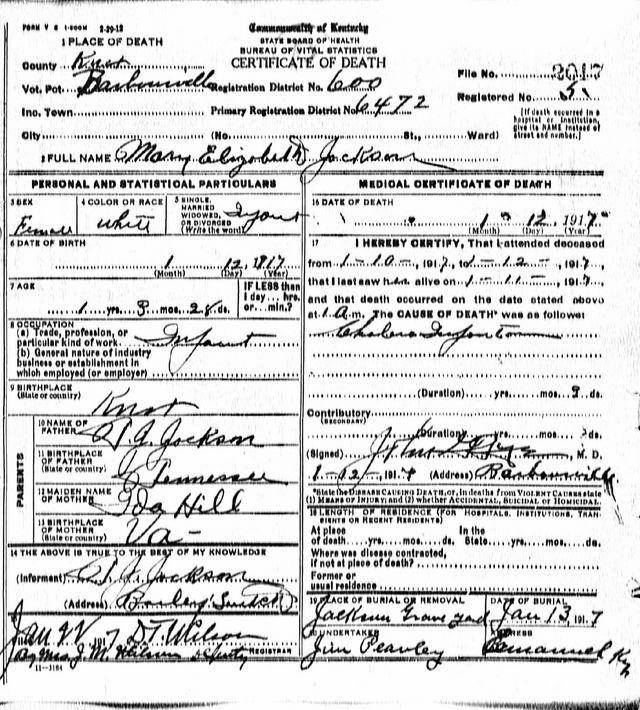 FORM V S 1-500M 2-29-12
Commonwealth of Kentucky
STATE BOARD OF HEALTH
BUREAU OF VITAL STATISTICS
CERTIFICATE OF DEATH
1 PLACE OF DEATH
County Knox
Vot. Pct. Barbourville Registration District No. 600
File No. 2017
Inc. Town Primary Registration District No. 6472
Registered No. 5
City (No. St., Ward)
[If death occurred in a hospital or institution, give its NAME instead of street and number.]
2 FULL NAME Mary Elizabeth Jackson
PERSONAL AND STATISTICAL PARTICULARS
3 SEX Female
4 COLOR OR RACE White
5 SINGLE, MARRIED WIDOWED, OR DIVORCED (Write the word) Infant
6 DATE OF BIRTH
1 12, 1917
(Month) (Day) (Year)
7 AGE
1 yrs. 3 mos. 28 ds.
IF LESS than 1 day... hrs. or... min.?
8 OCCUPATION
(a) Trade, profession, or particular kind of work Infant
(b) General nature of industry business or establishment in which employed (or employer)
9 BIRTHPLACE
(State or country)
Knox
PARENTS
10 NAME OF FATHER Jackson
11 BIRTHPLACE OF FATHER (State or country) Tennessee
12 MAIDEN NAME OF MOTHER Ida Hill
13 BIRTHPLACE OF MOTHER (State or country) Va-
14 THE ABOVE IS TRUE TO THE BEST OF MY KNOWLEDGE
(Informant) Jackson
(Address)
Jan 1917 D.T. Wilson
REGISTRAR
By Mrs J. M. Wilson Deputy
11-3184
MEDICAL CERTIFICATE OF DEATH
16 DATE OF DEATH
1 12, 1917
(Month) (Day) (Year)
17 I HEREBY CERTIFY, That I attended deceased
from 1-10-, 1917, to 1-12-, 1917,
that I last saw h alive on 1-11-, 1917
and that death occurred on the date stated above
at 1 a.m. The CAUSE OF DEATH* was as follows:
Cholera Infantum
(Duration) yrs. mos. 3 ds.
Contributory
(SECONDARY)
(Duration) yrs. mos. ds.
(Signed) M. D.
1-12, 1917 (Address) Barbourville
*State the DISEASE CAUSING DEATH, or, in deaths from VIOLENT CAUSES state
(1) MEANS OF INJURY; and (2) whether ACCIDENTAL, SUICIDAL OR HOMICIDAL.
18 LENGTH OF RESIDENCE (FOR HOSPITALS, INSTITUTIONS, TRANSIENTS OR RECENT RESIDENTS)
At place of death yrs. mos. ds. In the State yrs. mos. ds.
Where was disease contracted,
if not at place of death?
Former or
usual residence
19 PLACE OF BURIAL OR REMOVAL
Jackson Grave yard
DATE OF BURIAL
Jan 13, 1917
20 UNDERTAKER
Jim Pearley
ADDRESS
Emanuel Ky